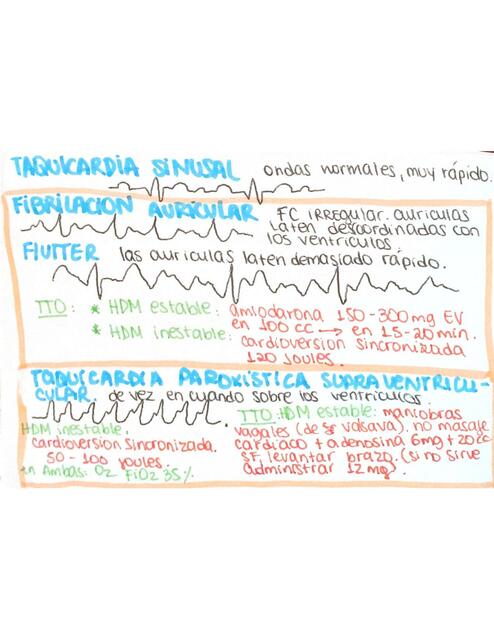 TAQUICARDIA SINUSAL ondas normales, muy rápido.
FIBRILACION AURICULAR FC irregular. auriculas
laten descordinadas con
los ventriculos.
FlUTTER las auriculas laten demasiado rápido.
TTO: * HDM estable: amiodarona 150-300 mg EV
en 100 cc → en 15-20 min.
* HDM inestable: cardioversion sincronizada
120 joules.
TAQUICARDIA PAROXISTICA SUPRAVENTRICU-
CULAR. de vez en cuando sobre los ventriculos.
TTO: HDM estable: maniobras
vagales (de valsava). no masaje
cardiaco + adenosina 6mg + 20cc
SF, levantar brazo. (si no sirve
administrar 12mg).
HDM inestable.
cardioversion sincronizada.
50-100 joules.
en Ambas: O2 FiO2 35%